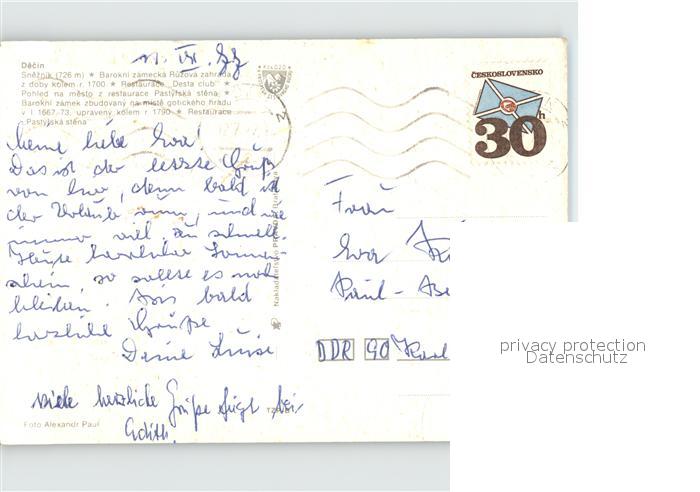 Děčín
Sněžník (726 m) * Barokní zámecká Růžová zahrada
z doby kolem r. 1700 * Restaurace „Desta club" *
Pohled na město z restaurace Pastýřská stěna *
Barokní zámek zbudovaný na místě gotického hradu
v l. 1667-73, upravený kolem r. 1790 * Restaurace
Pastýřská stěna
Meine liebe Eva!
Das ist der letzte Gruß
von hier, denn bald ist
der Urlaub und wie
immer viel zu schnell.
Heute herrlicher Sonnen-
schein, so sollte es noch
bleiben. Bis bald
herzliche Grüße
Deine
viele herzliche Grüße fügt bei
Edith.
Foto Alexandr Paul
Nakladatelství
ČESKOSLOVENSKO
30h
Frau
Eva
Paul-
DDR 90 Karl
privacy protection
Datenschutz